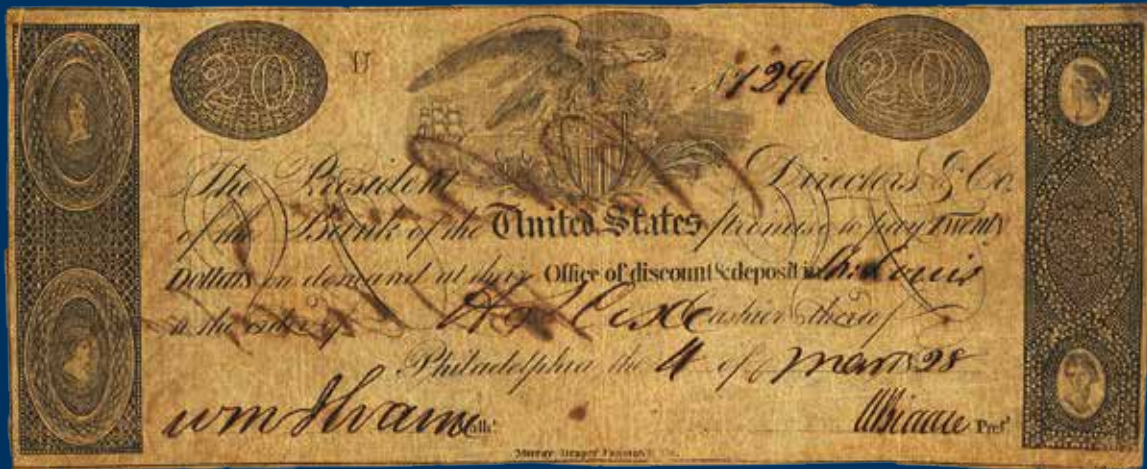 20 U 1291 20
The President Directors & Co.
of the Bank of the United States promise to pay Twenty
Dollars on demand at their Office of discount & deposit in St. Louis
to the order of Cashier thereof
Philadelphia the 4 of 28
Wm Cash.r Prest.
Murray, Draper Fairman & Co.